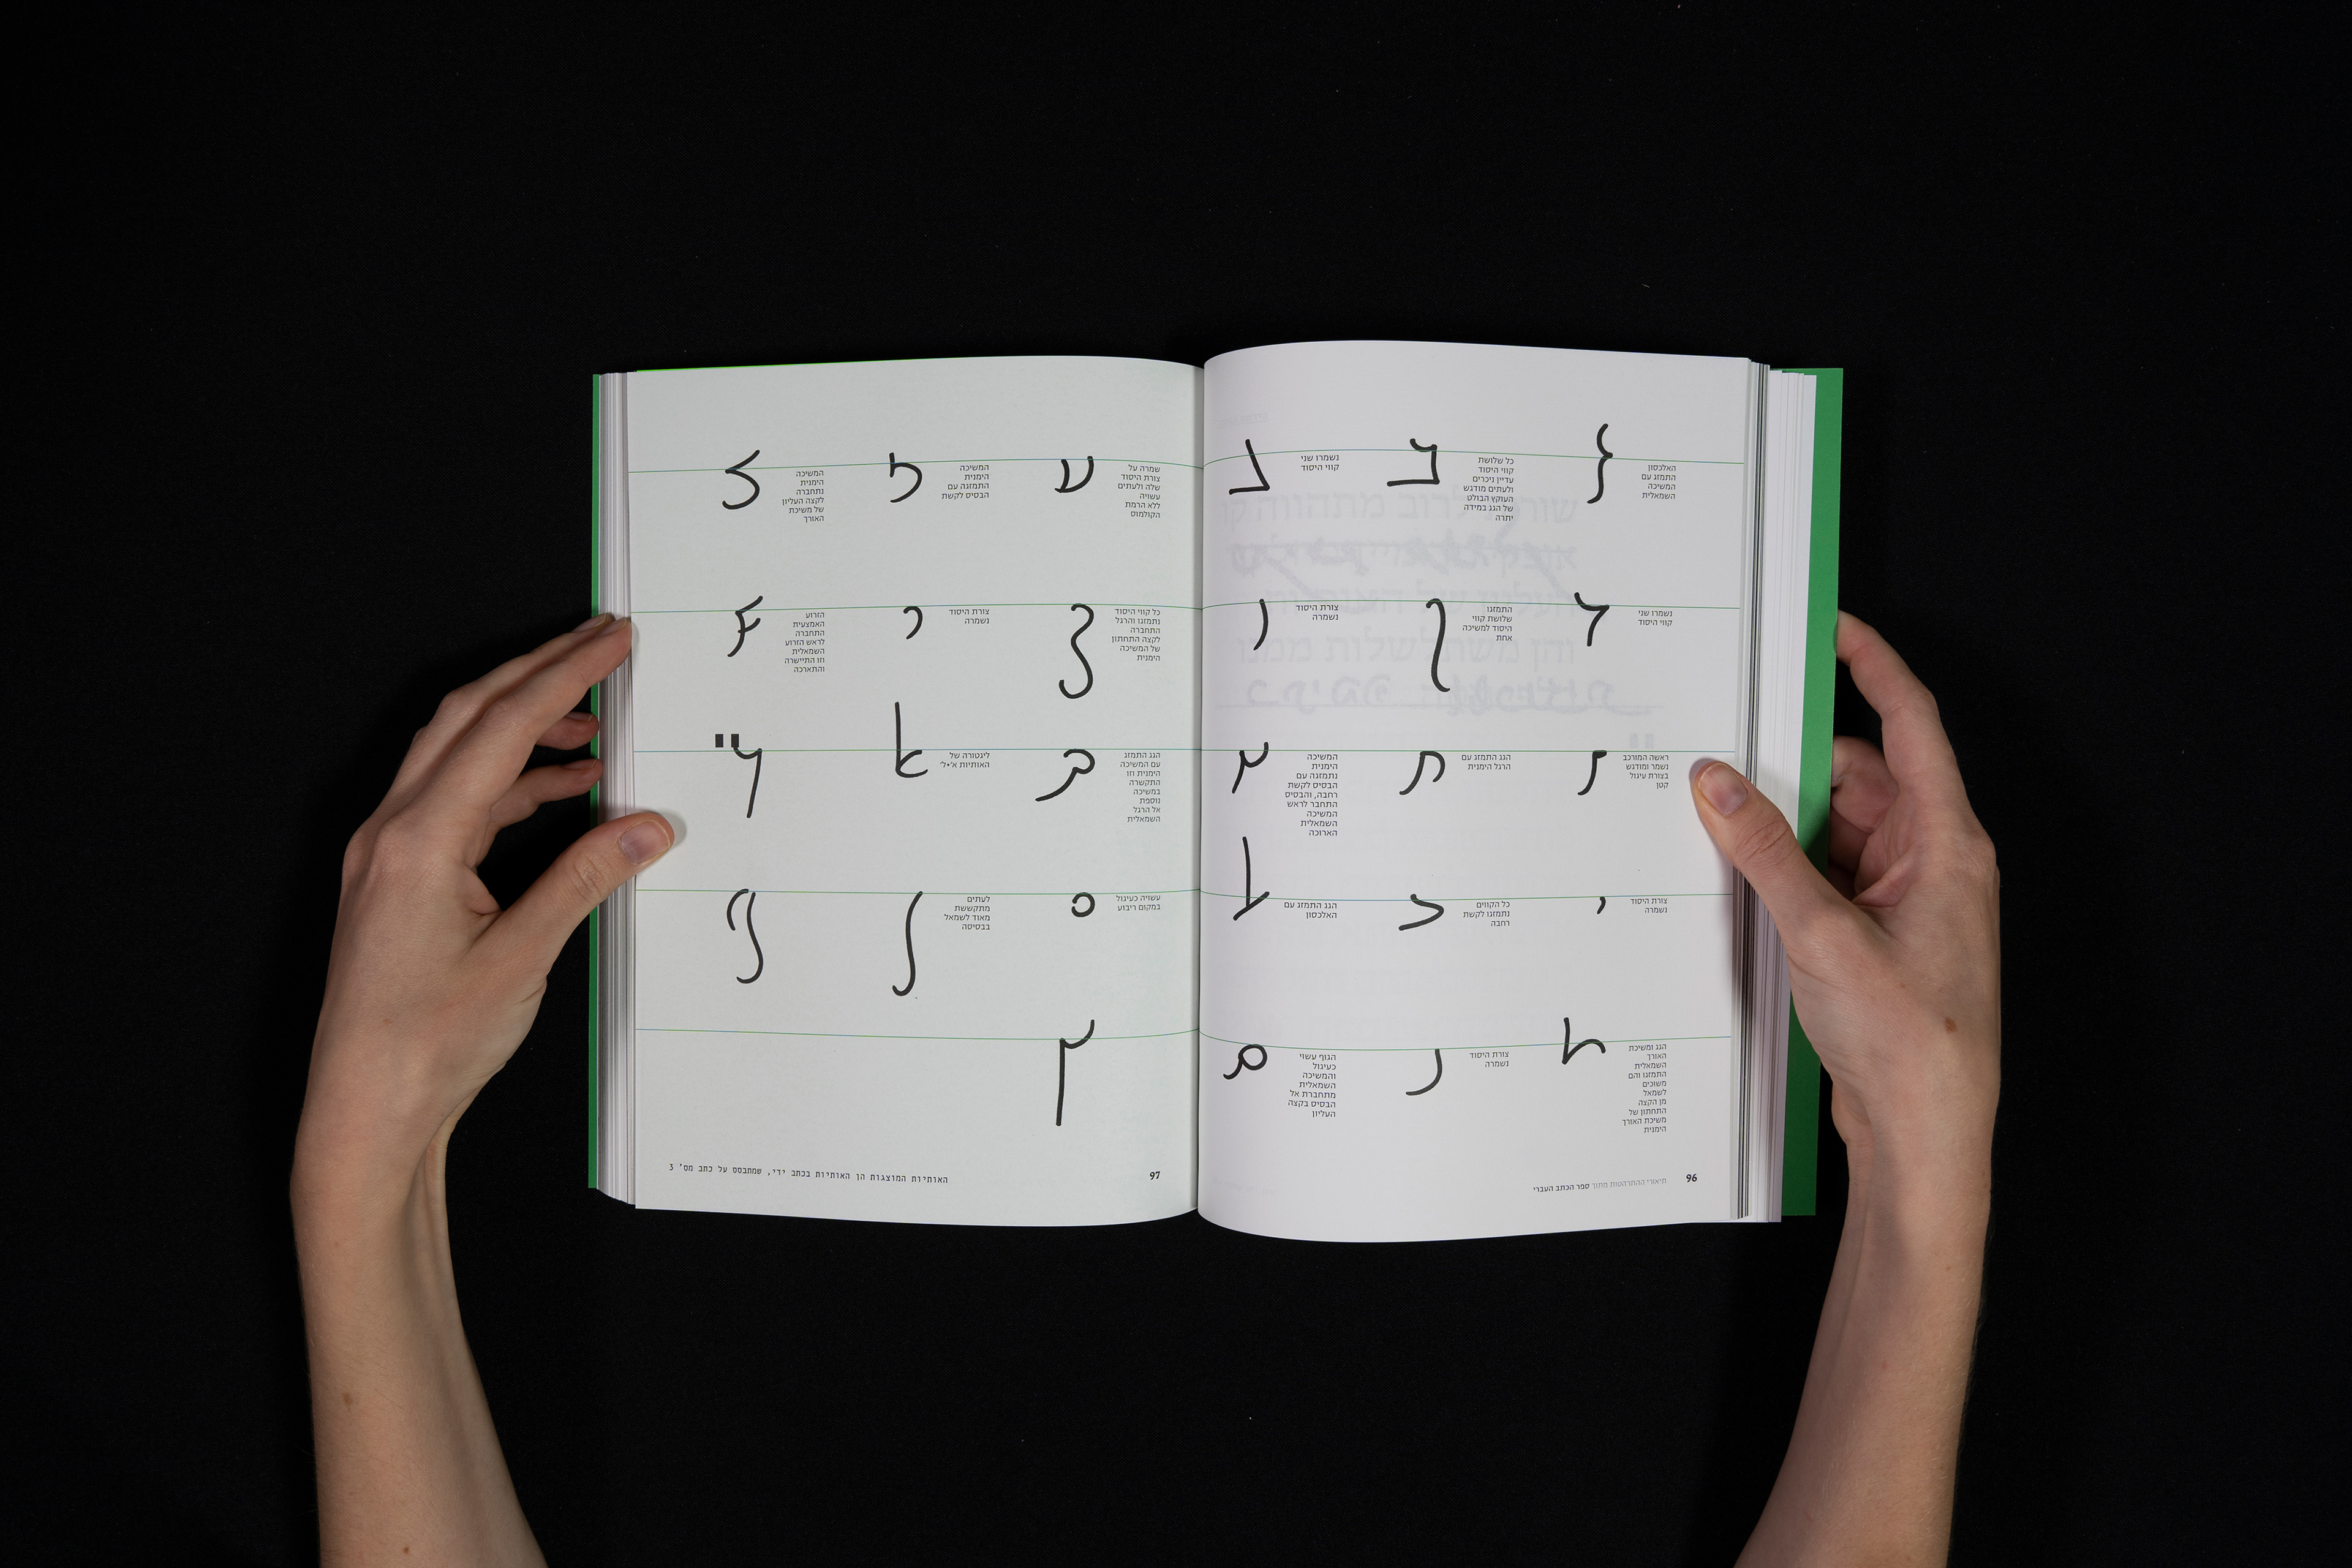 א
האלכסון
התמזג עם
המשיכה
השמאלית
ב
כל שלושת
קווי היסוד
עדיין ניכרים
ולעתים מודגש
העוקץ הבולט
של הגג במידה
יתרה
ג
נשמרו שני
קווי היסוד
ד
נשמרו שני
קווי היסוד
ה
התמזגו
שלושת קווי
היסוד למשיכה
אחת
ו
צורת היסוד
נשמרה
ז
ראשה המורכב
נשמר ומודגש
בצורת עיגול
קטן
ח
הגג התמזג עם
הרגל הימנית
ט
המשיכה
הימנית
נתמזגה עם
הבסיס לקשת
רחבה, והבסיס
התחבר לראש
המשיכה
השמאלית
הארוכה
י
צורת היסוד
נשמרה
כ
כל הקווים
נתמזגו לקשת
רחבה
ל
הגג התמזג עם
האלכסון
מ
הגג ומשיכת
האורך
השמאלית
התמזגו והם
משוכים
לשמאל
מן הקצה
התחתון של
משיכת האורך
הימנית
נ
צורת היסוד
נשמרה
ס
הגוף עשוי
כעיגול
והמשיכה
השמאלית
מתחברת אל
הבסיס בקצה
העליון
תיאורי ההתרהטות מתוך ספר הכתב העברי
96
ע
שמרה על
צורת היסוד
שלה ולעתים
עשויה
ללא הרמת
הקולמוס
פ
המשיכה
הימנית
התמזגה עם
הבסיס לקשת
צ
המשיכה
הימנית
נתחברה
לקצה העליון
של משיכת
האורך
ק
כל קווי היסוד
נתמזגו והרגל
התחברה
לקצה התחתון
של המשיכה
הימנית
ר
צורת היסוד
נשמרה
ש
הזרוע
האמצעית
התחברה
לראש הזרוע
השמאלית
וזו התיישרה
והתארכה
ת
הגג התמזג
עם המשיכה
הימנית וזו
התקשרה
במשיכה
נוספת
אל הרגל
השמאלית
ﭏ
ליגטורה של
האותיות א'+ל'
ך
ם
עשויה כעיגול
במקום ריבוע
ן
לעתים
מתקששת
מאוד לשמאל
בבסיסה
ף
ץ
97
האותיות המוצגות הן האותיות בכתב ידי, שמתבסס על כתב מס' 3